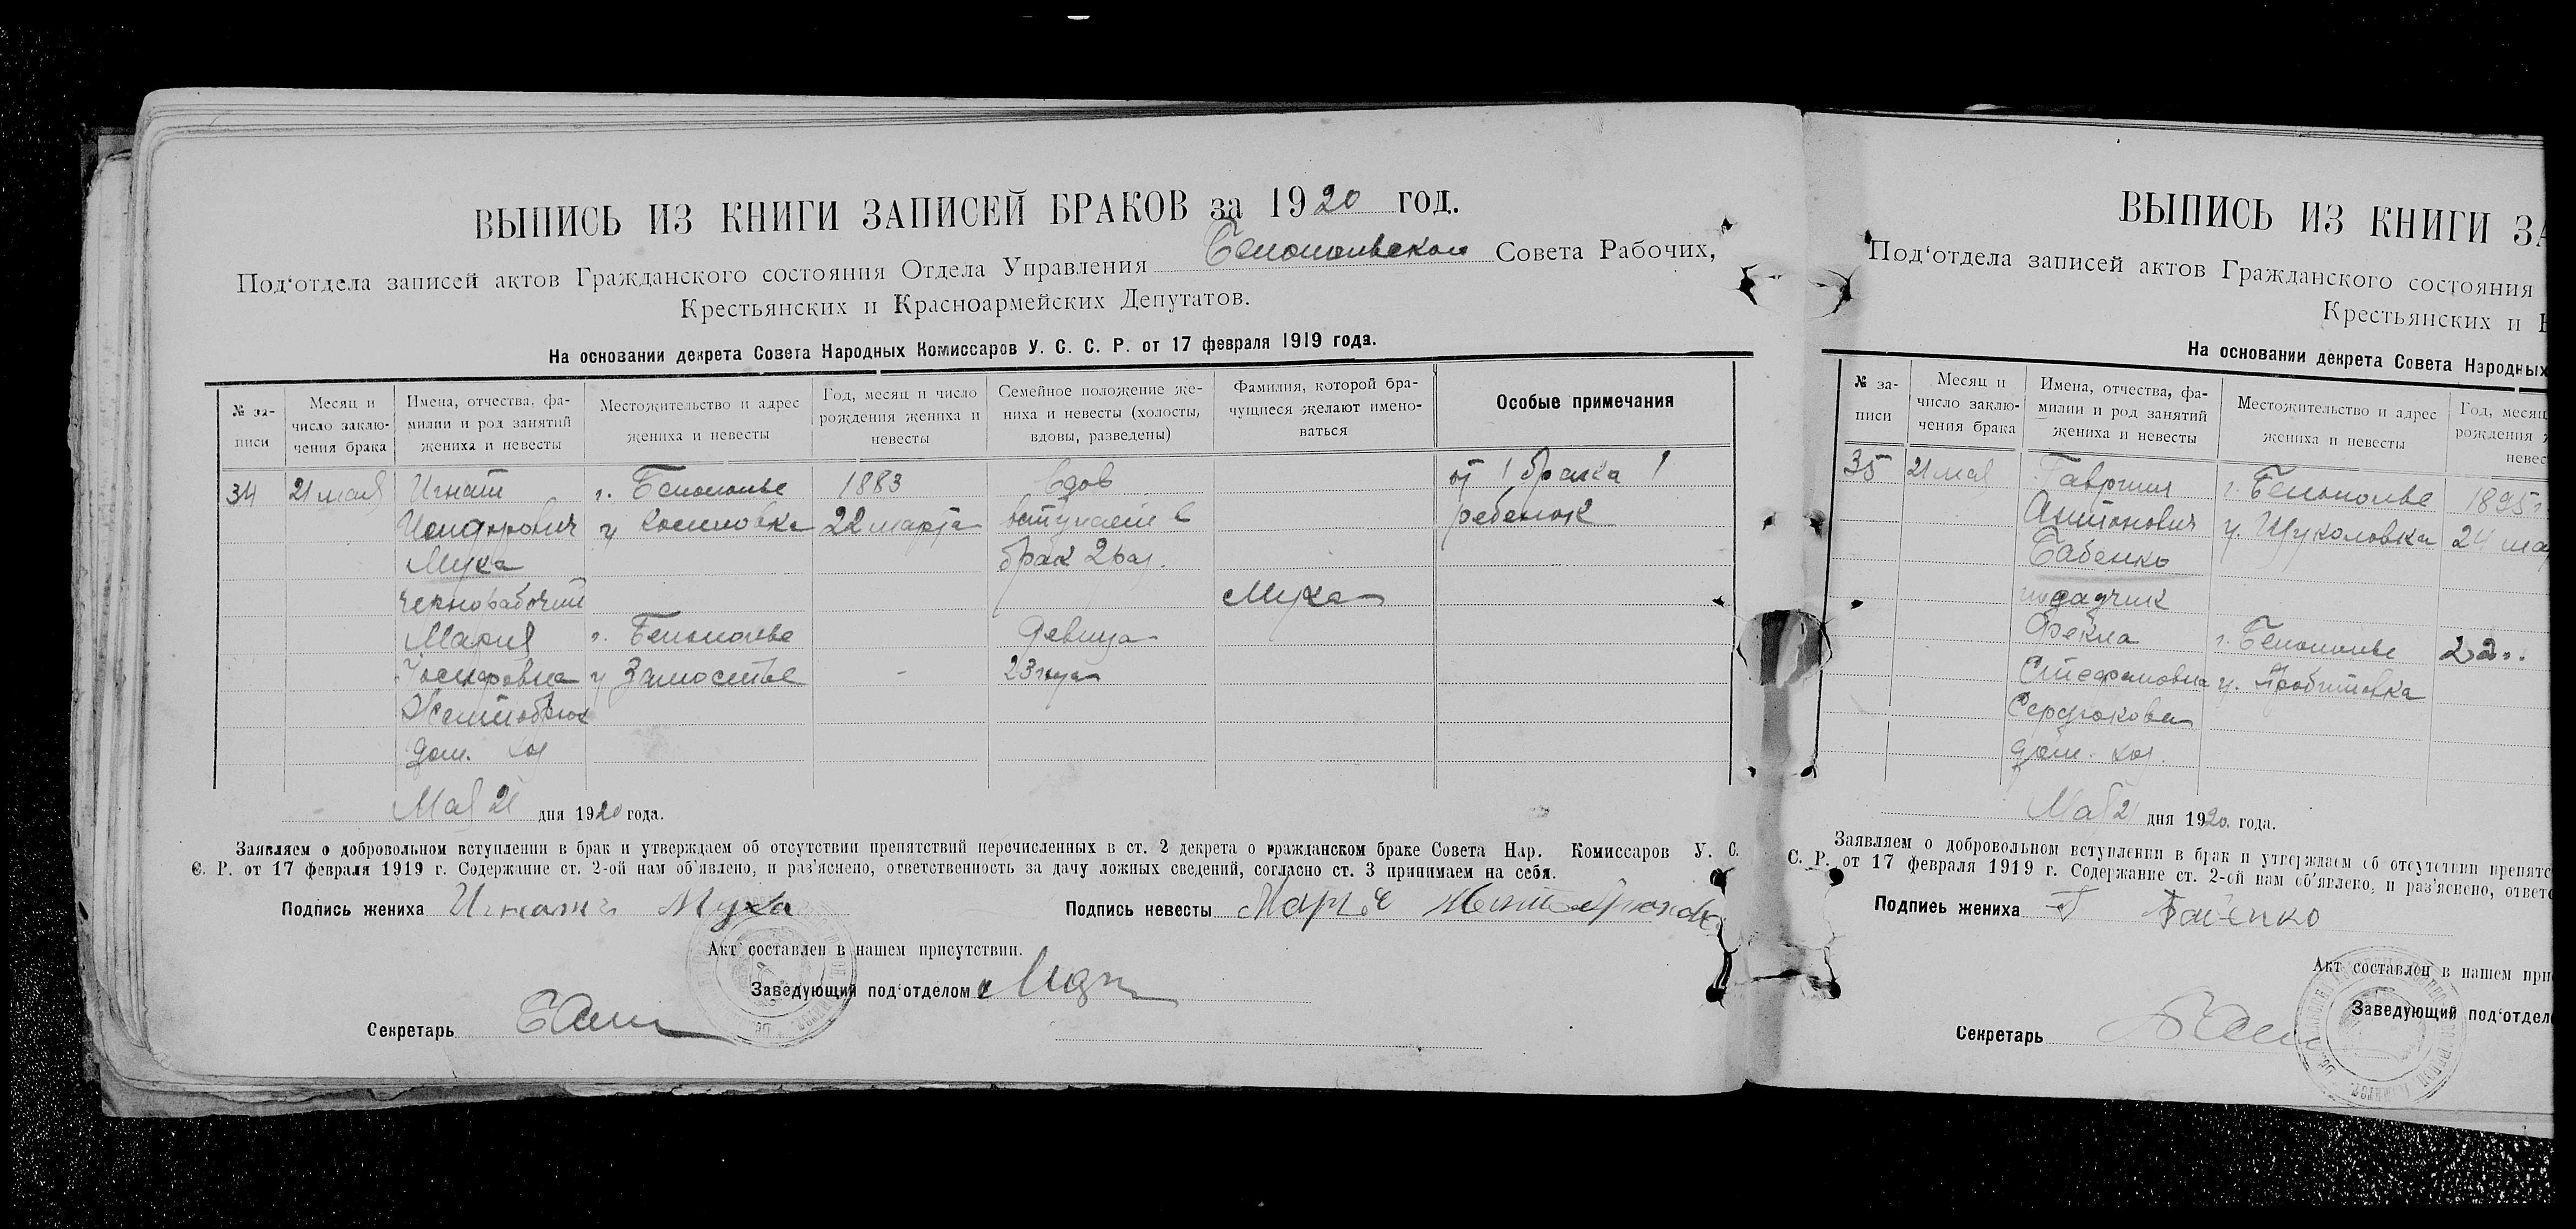 ВЫПИСЬ ИЗ КНИГИ ЗАПИСЕЙ БРАКОВ за 1920 год.
Под‘отдела записей актов Гражданского состояния Отдела Управления Белопольского Совета Рабочих,
Крестьянских и Красноармейских Депутатов.
На основании декрета Совета Народных Комиссаров У. С. С. Р. от 17 февраля 1919 года.
№ за-
писи
Месяц и
число заклю-
чения брака
Имена, отчества, фа-
милии и род занятий
жениха и невесты
Местожительство и адрес
жениха и невесты
Год, месяц и число
рождения жениха и
невесты
Семейное положение же-
ниха и невесты (холосты,
вдовы, разведены)
Фамилия, которой бра-
чущиеся желают имено-
ваться
Особые примечания
34
21 мая
Игнат
Исидорович
Муха
чернорабочий
г. Белополье
1883
22 марта
Вдов
вступает в
брак 2 раз.
Муха
от 1 брака 1
ребенок
Мария
дом. хоз
г. Белополье
ч Замостье
-
Девица
23 года
Мая 21 дня 1920 года.
Заявляем о добровольном вступлении в брак и утверждаем об отсутствии препятствий перечисленных в ст. 2 декрета о гражданском браке Совета Нар. Комиссаров У. С.
С. Р. от 17 февраля 1919 г. Содержание ст. 2-ой нам об‘явлено, и раз‘яснено, ответственность за дачу ложных сведений, согласно ст. 3 принимаем на себя.
Подпись жениха Муха
Подпись невесты
Акт составлен в нашем присутствии.
Заведующий под‘отделом
Секретарь
ВЫПИСЬ ИЗ КНИГИ ЗА
Под‘отдела записей актов Гражданского состояния
Крестьянских и
На основании декрета Совета Народных
№ за-
писи
Месяц и
число заклю-
чения брака
Имена, отчества, фа-
милии и род занятий
жениха и невесты
Местожительство и адрес
жениха и невесты
Год, месяц
рождения
невес
35
21 мая
Гавриил
Антонович
Бабенко
г. Белополье
1895
24 ма
Фекла
Стефановна
Сердюкова
дом. хоз.
г. Белополье
22 г.
Мая 21 дня 1920 года.
Заявляем о добровольном вступлении в брак и утверждаем об отсутствии препятс
С. Р. от 17 февраля 1919 г. Содержание ст. 2-ой нам об‘явлено, и раз‘яснено, ответс
Подпись жениха Г Бабенко
Акт составлен в нашем при
Заведующий под‘отдел
Секретарь